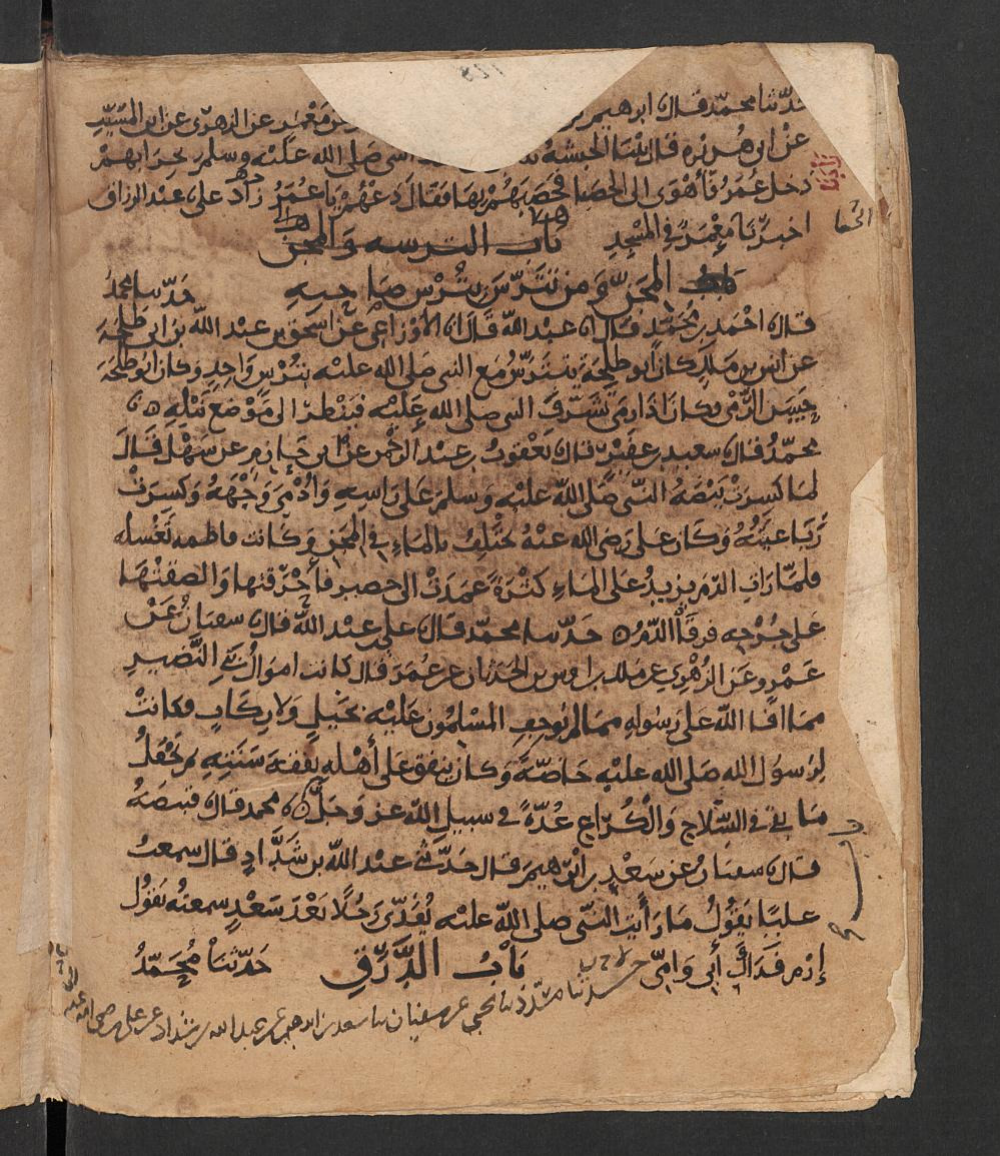 حدثنا محمد قال ابرهيم بن معمر عن الزهري عن ابن المسيب
عن ابي هريرة قال بينا الحبشة النبي صلى الله عليه وسلم بحرابهم
دخل عمر فأهوى الى الحصبا فحصبهم بها فقال دعهم يا عمر زاد علي عبد الرزاق
اخبرنا معمر في المسجد باب الترسه والمجن
باب المجن ومن تترس بترس صاحبه حدثنا محمد
قال احمد بن محمد قال انا عبد الله قال انا الاوزاعي عن اسحق بن عبد الله بن ابي طلحة
عن انس بن ملك كان ابو طلحة يتترس مع النبي صلى الله عليه بترس واحد وكان ابو طلحة
حسن الرمي وكان اذا رمى تشرف النبي صلى الله عليه فينظر الى موضع نبله
محمد قال سعيد بن عفير قال يعقوب بن عبد الرحمن عن ابي حازم عن سهل قال
لما كسرت بيضة النبي صلى الله عليه وسلم على راسه وأدمي وجهه وكسرت
رباعيته وكان علي رضي الله عنه يختلف بالماء في المجن وكانت فاطمه تغسله
فلما رات الدم يزيد على الماء كثرة عمدت الى حصير فأحرقتها والصقتها
على جرحه فرقأ الدم حدثنا محمد قال علي بن عبد الله قال سفيان عن
عمرو عن الزهري عن ملك بن اوس بن الحدثان عن عمر قال كانت اموال بني النضير
مما افا الله على رسوله مما لم يوجف المسلمون عليه بخيل ولا ركاب فكانت
لرسول الله صلى الله عليه خاصة وكان ينفق على أهله نفقة سنته ثم تجعل
ما بقي في السلاح والكراع عدة في سبيل الله عز وجل محمد قال قبيصة
قال سفيان عن سعد بن ابرهيم قال حدثني عبد الله بن شداد قال سمعت
عليا يقول ما رأيت النبي صلى الله عليه يفدي رجلا بعد سعد سمعته يقول
إرم فداك أبي وامي باب الدرق حدثنا محمد
حدثنا مسدد ثنا يحيى عن سفيان ثنا سعد بن ابرهيم عن عبد الله بن شداد عن علي رضي الله عنه